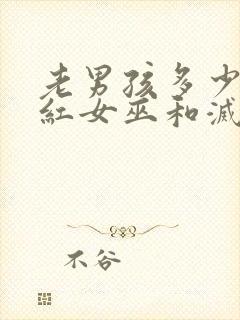 老男孩多少
紅女巫和滅
不谷